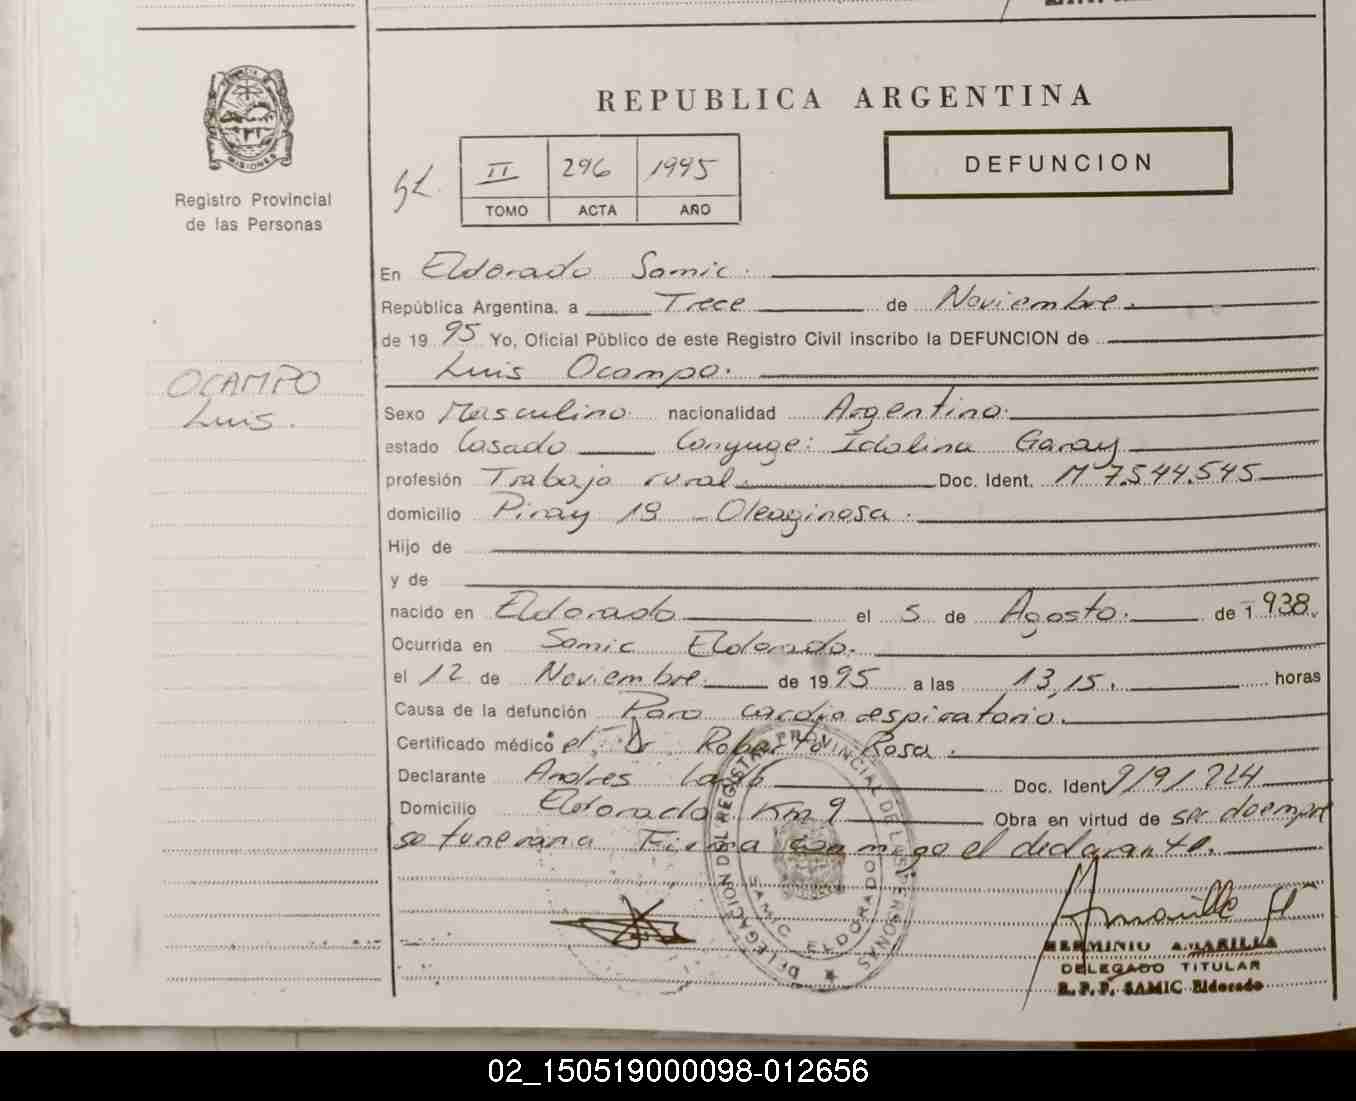 REPUBLICA ARGENTINA
MISIONES
Registro Provincial
de las Personas
II 296 1995
TOMO ACTA AÑO
DEFUNCION
En Eldorado Samic.
República Argentina, a Trece de Noviembre.
de 19 95 Yo, Oficial Público de este Registro Civil inscribo la DEFUNCION de
Luis Ocampo.
OCAMPO
Luis.
Sexo Masculino nacionalidad Argentina.
estado Casado Conyuge: Idolina Garay
profesión Trabajo rural. Doc. Ident. M 7.544.545
domicilio Piray 18 - Oleaginosa.
Hijo de
y de
nacido en Eldorado el 5 de Agosto. de 1938.
Ocurrida en Samic Eldorado.
el 12 de Noviembre de 1995 a las 13,15. horas
Causa de la defunción Paro cardiorespiratorio.
Certificado médico el Dr. Roberto Rosa.
Declarante Andres Doc. Ident
Domicilio Eldorado Km 9 Obra en virtud de ser de empre
sa funeraria Firma conmigo el declarante.
DELEGACION DEL REGISTRO PROVINCIAL DE LAS PERSONAS
SAMIC ELDORADO
Amarilla H
HERMINIO AMARILLA
DELEGADO TITULAR
R. P. P. SAMIC Eldorado
02_150519000098-012656